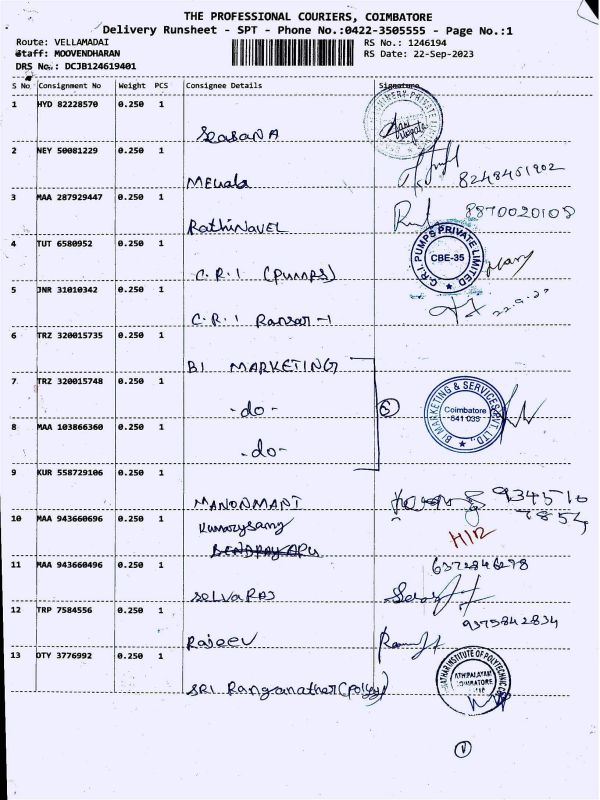 THE PROFESSIONAL COURIERS, COIMBATORE
Delivery Runsheet - SPT - Phone No.:0422-3505555 - Page No.:1
Route: VELLAMADAI RS No.: 1246194
Staff: MOOVENDHARAN RS Date: 22-Sep-2023
DRS No.: DCJB124619401
S No Consignment No Weight PCS Consignee Details Signature
1 HYD 82228570 0.250 1
2 NEY 50081229 0.250 1
8248451902
Mehala
3 MAA 287929447 0.250 1
8870020108
RathiNAVEL
4 TUT 6580952 0.250 1
C.R.I PUMPS PRIVATE LIMITED
CBE-35
C.R.I (PUMPS)
5 JNR 31010342 0.250 1
22.9.23
C.R.I Ransar-1
6 TRZ 320015735 0.250 1
BI MARKETING
7 TRZ 320015748 0.250 1
-do-
BI MARKETING & SERVICES PVT LTD.,
Coimbatore
641 035
8 MAA 103866360 0.250 1
-do-
9 KUR 558729106 0.250 1
934510
7854
MANONMANI
10 MAA 943660696 0.250 1
Kumarysamy
H12
11 MAA 943660496 0.250 1
6372846278
SELVARAJ
12 TRP 7584556 0.250 1
9375842834
Rajeev
13 OTY 3776992 0.250 1
INSTITUTE OF POLYTECHNIC
ATHIPALAYAM
COIMBATORE
SRI Ranganather (Polyy)